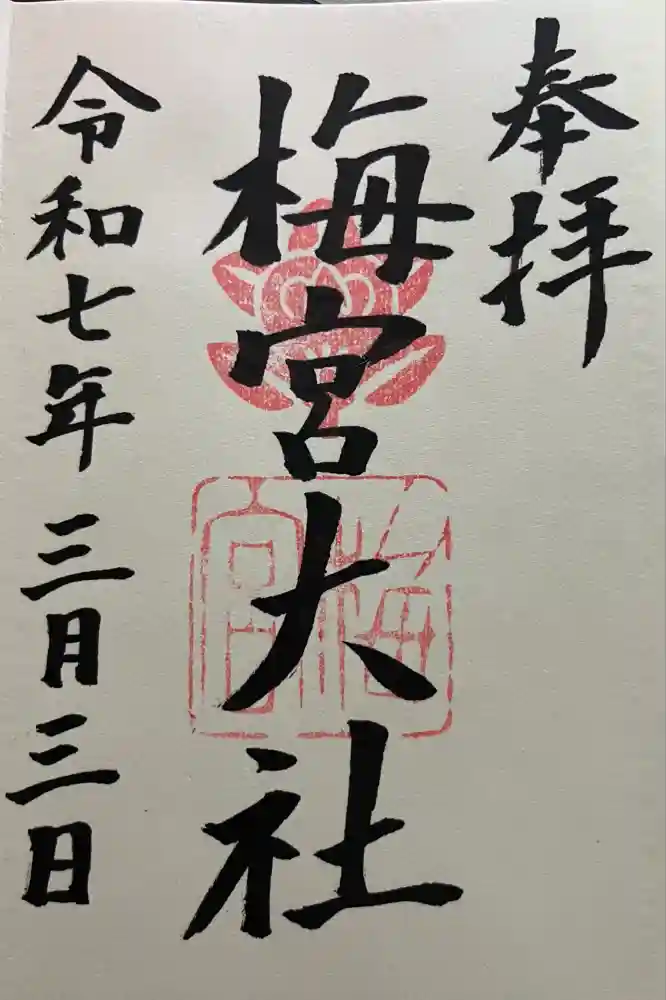 奉拝
梅宮大社
梅宮
令和七年三月三日